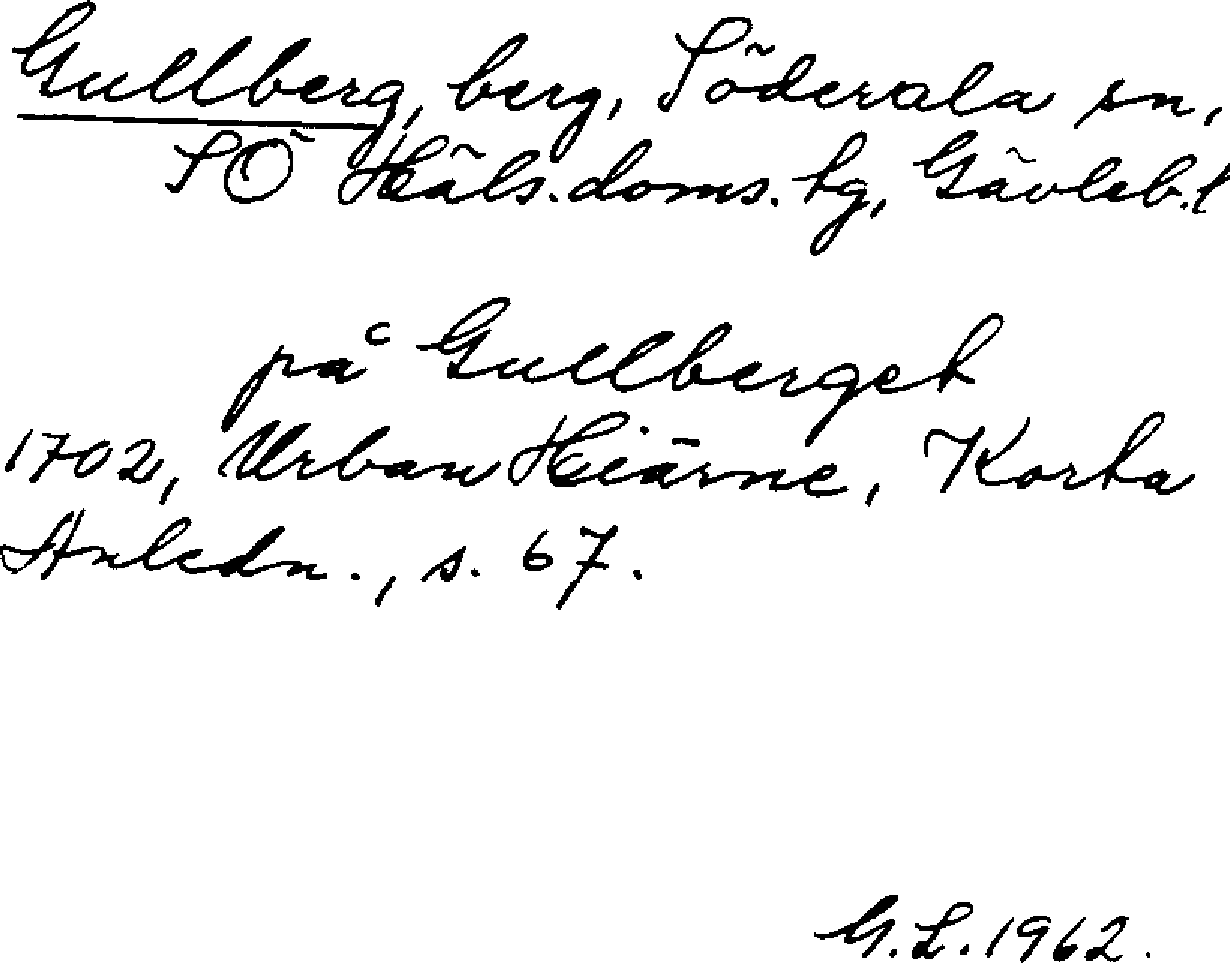 Gullberg, berg, Söderala sn,
SÖ Häls. doms. tg, Gävleb. l
på Gullberget
1702, Urban Hiärne, Korta
Anledn., s. 67.
G. L. 1962.